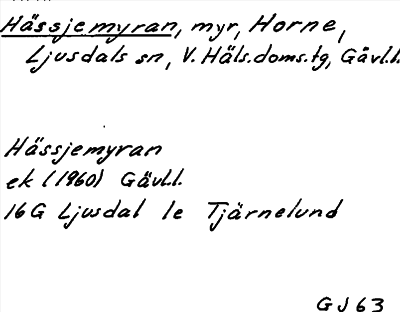 Hässjemyran, myr, Horne,
Ljusdals sn, V. Häls.doms.tg, Gävl.l.
Hässjemyran
ek (1960) Gävl.l.
16G Ljusdal 1e Tjärnelund
GJ63